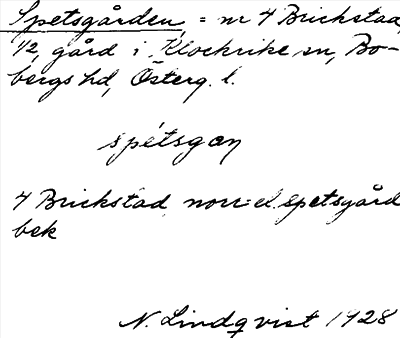 Spetsgården, = nr 4 Brickstad,
1/2, gård i Klockrike sn, Bo-
bergs hd, Österg. l.
spétsgan
4 Brickstad norr: el. spetsgård
bek
N. Lindqvist 1928